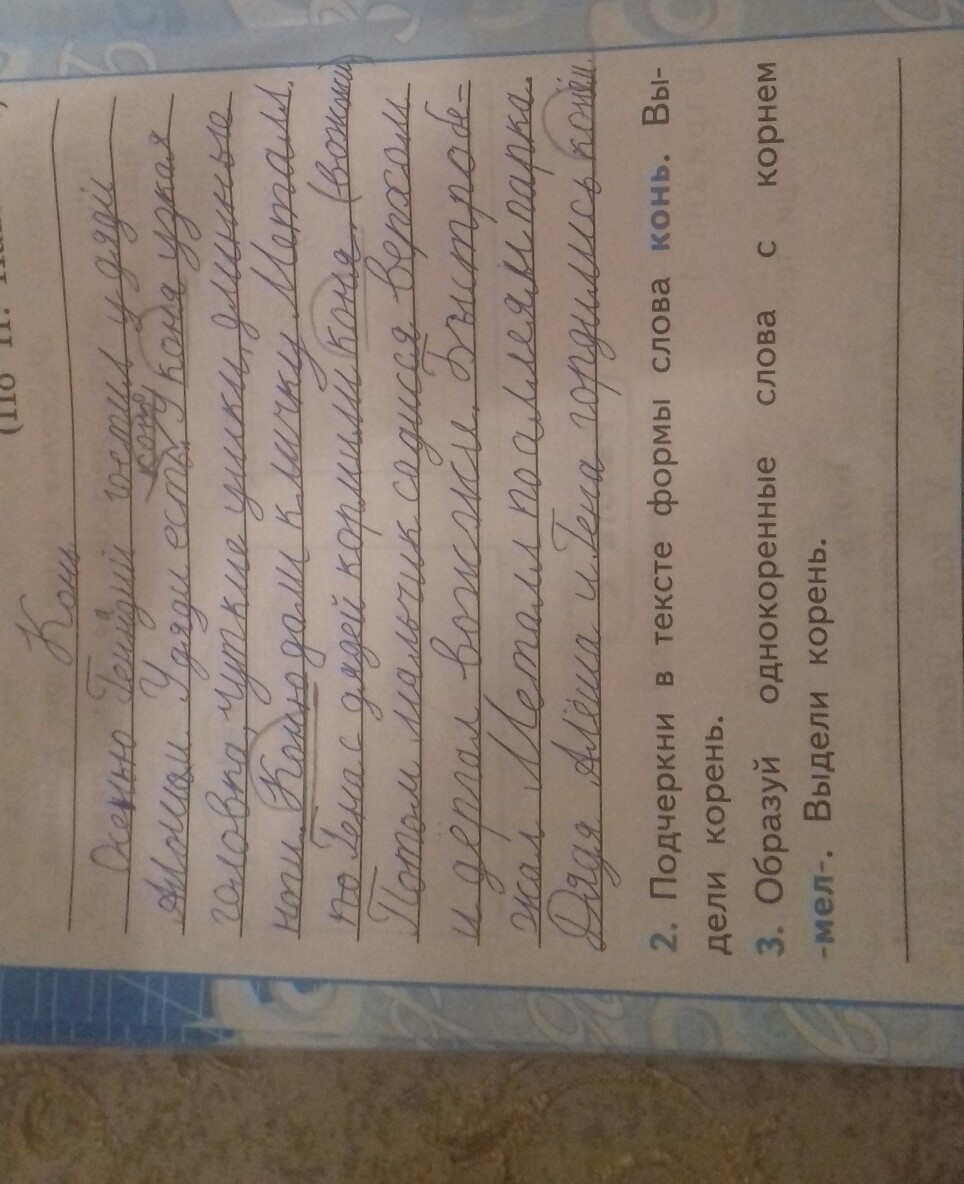 (По П.
Конь
Осенью Генадий гостил у дяди
конь
Алёши. У дяди есть. У коня узкая
головка, чуткие ушки, длинные
ноги. Коню дали кличку Металл.
Гена с дядей кормили коня. (вожжи)
Потом мальчик садился верхом
и дёргал вожжи. Быстро бе-
жал Металл по аллеям парка.
Дядя Алёша и Гена гордились конём.
2. Подчеркни в тексте формы слова конь. Вы-
дели корень.
3. Образуй однокоренные слова с корнем
-мел-. Выдели корень.